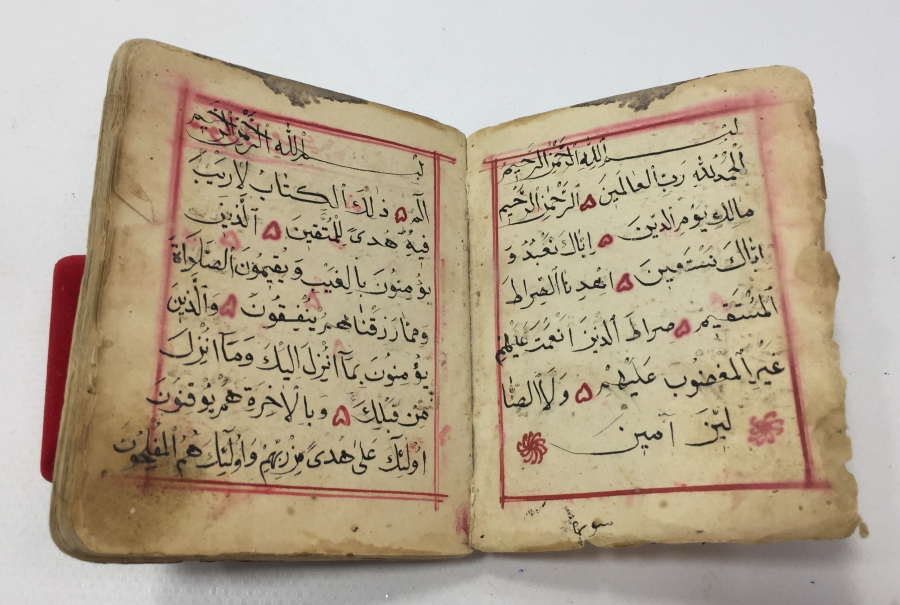 بسم الله الرحمن الرحيم
الحمد لله رب العالمين ۵ الرحمن الرحيم
مالك يوم الدين ۵ اياك نعبد و
اياك نستعين ۵ اهدنا الصراط
المستقيم ۵ صراط الذين انعمت عليهم
غير المغضوب عليهم ۵ ولا الضا
لين آمين
بسم الله الرحمن الرحيم
الم ۵ ذلك الكتاب لاريب
فيه هدى للمتقين ۵ الذين
يؤمنون بالغيب ويقيمون الصلاة
ومما رزقناهم ينفقون ۵ والذين
يؤمنون بما انزل اليك وما انزل
من قبلك ۵ وبالاخرة هم يوقنون
اولئك على هدى من ربهم واولئك هم المفلحون